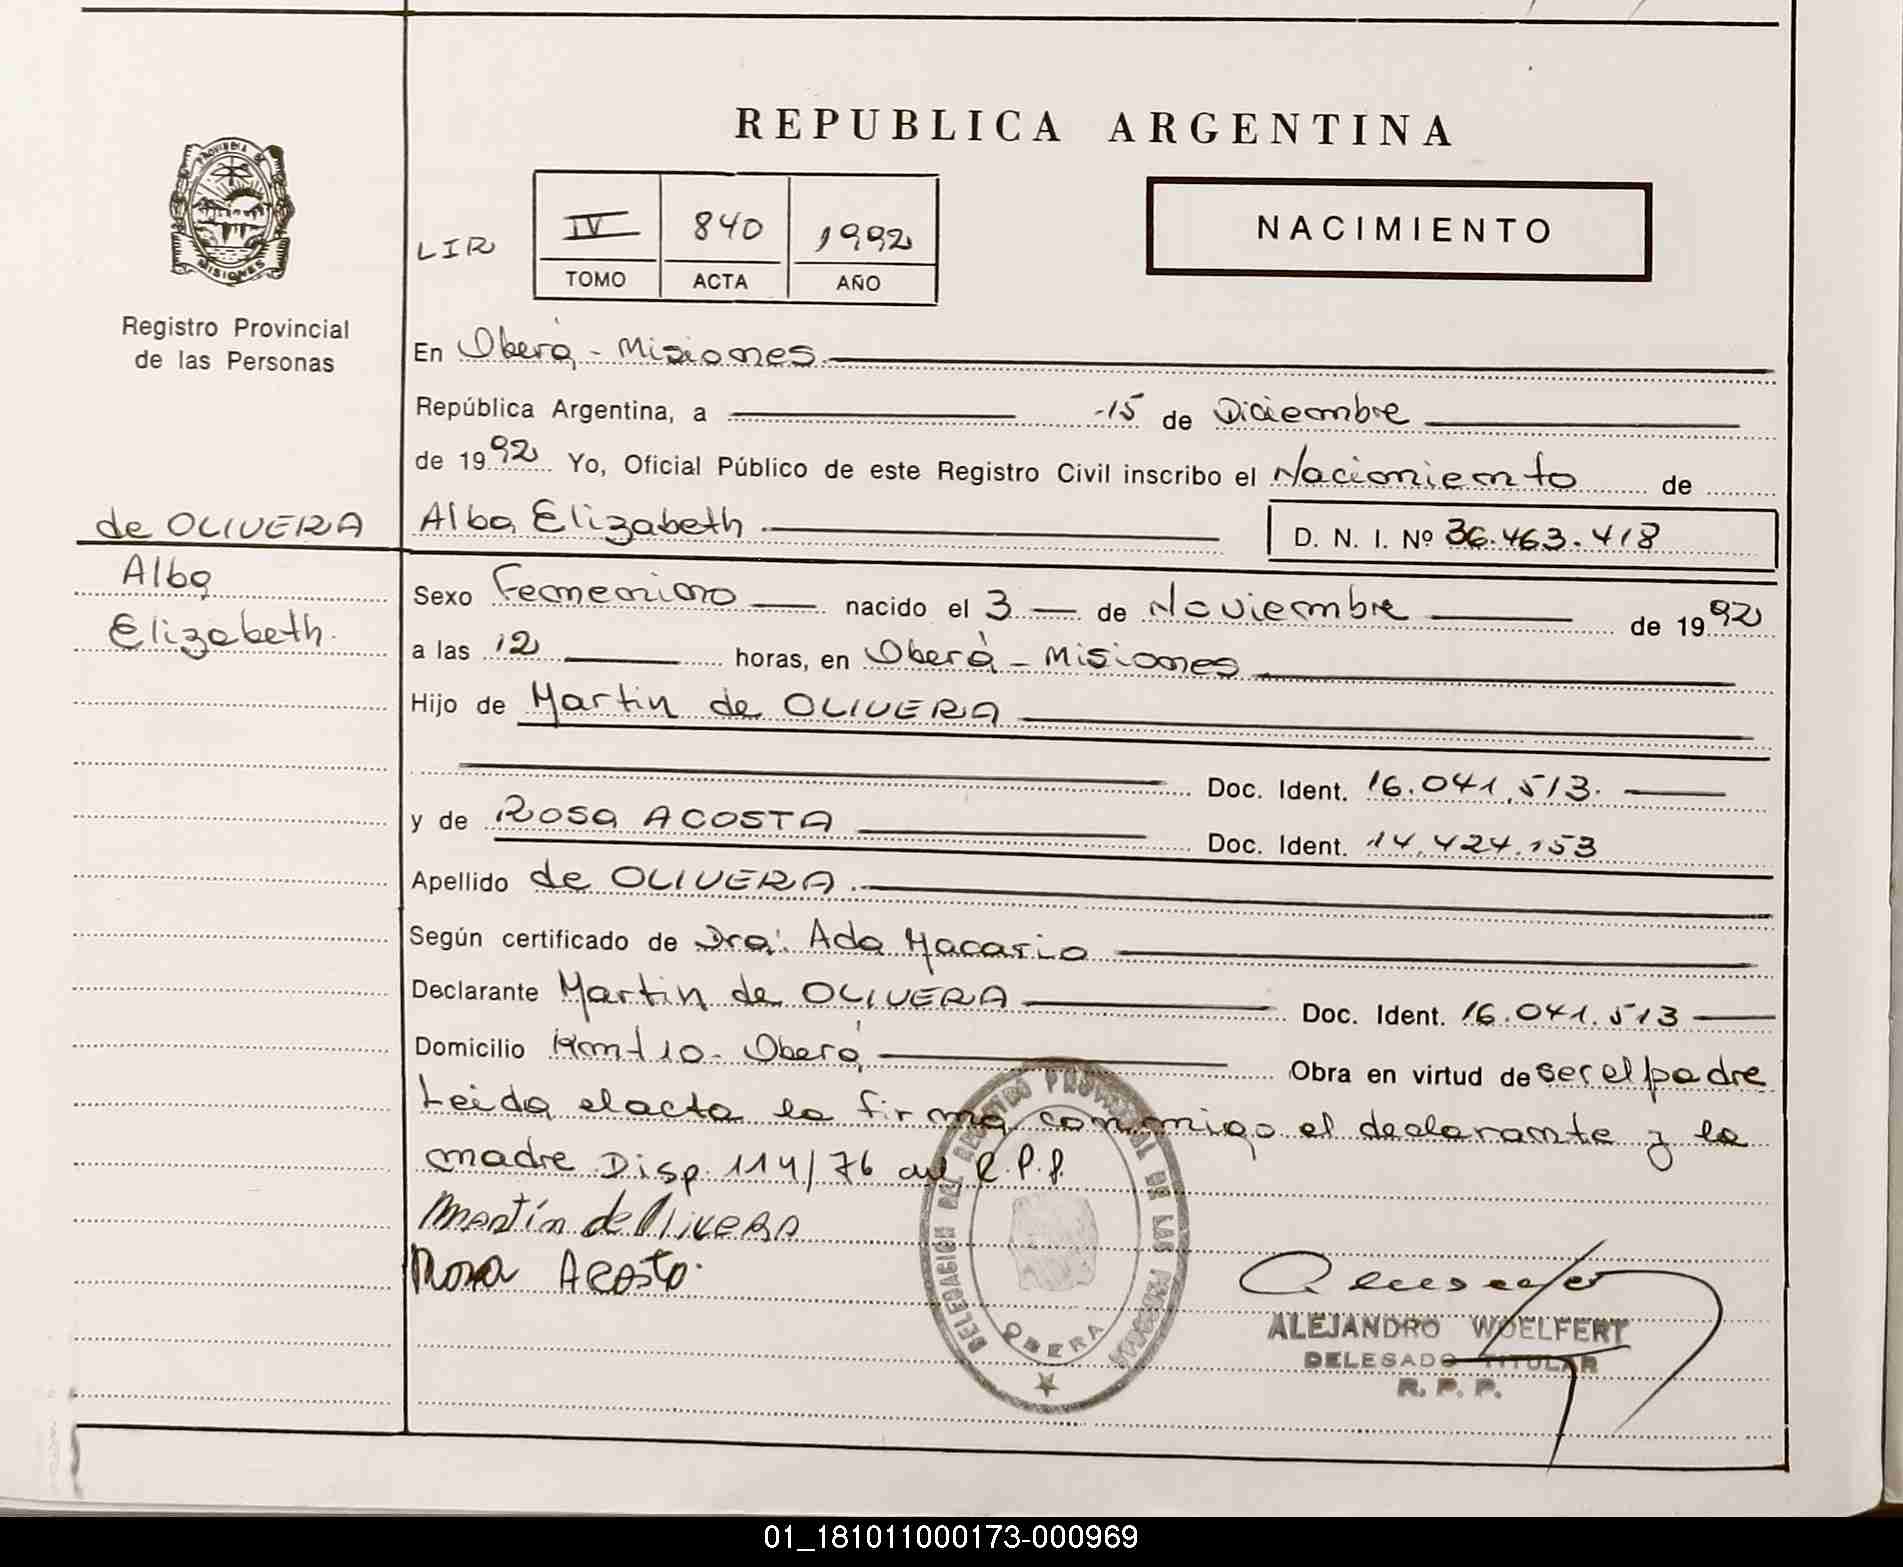 REPUBLICA ARGENTINA
PROVINCIA DE
MISIONES
Registro Provincial
de las Personas
LIR
IV 840 1992
TOMO ACTA AÑO
NACIMIENTO
En Oberá - Misiones
República Argentina, a 15 de Diciembre
de 1992 Yo, Oficial Público de este Registro Civil inscribo el Nacimiento de
de OLIVERA
Alba
Elizabeth
Alba Elizabeth D. N. I. Nº 36.463.418
Sexo Femenino nacido el 3 de Noviembre de 1992
a las 12 horas, en Oberá - Misiones
Hijo de Martin de OLIVERA
Doc. Ident. 16.041.513.
y de Rosa ACOSTA Doc. Ident. 14.424.153
Apellido de OLIVERA.
Según certificado de Dra. Ada Macario
Declarante Martin de OLIVERA Doc. Ident. 16.041.513
Domicilio Km 10 - Oberá Obra en virtud de ser el padre
Leida el acta la firma conmigo el declarante y la
madre Disp. 114/76 del R.P.P.
Martín de Olivera
Rosa Acosta.
DELEGACION DEL REGISTRO PROVINCIAL DE LAS PERSONAS
OBERA
ALEJANDRO WOELFERT
DELEGADO TITULAR
R. P. P.
01_181011000173-000969